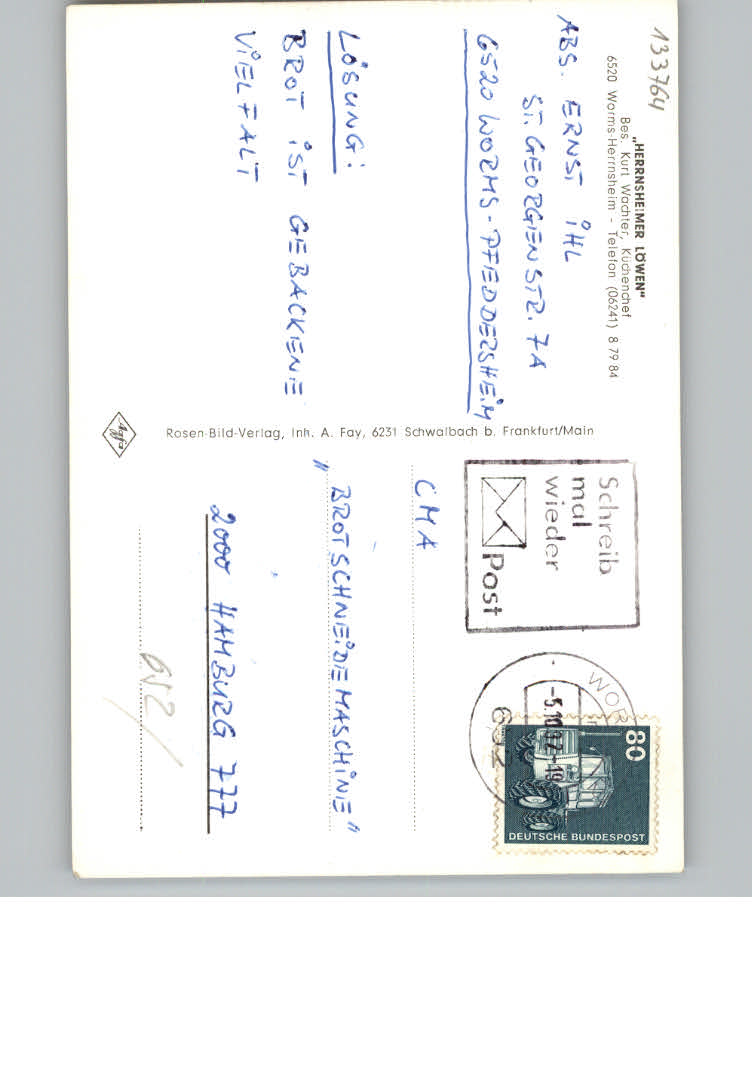 133764
„HERRNSHEIMER LÖWEN"
Bes. Kurt Wachter, Küchenchef
6520 Worms-Herrnsheim - Telefon (06241) 8 79 84
ABS. ERNST IHL
ST. GEORGENSTR. 7A
6520 WORMS-PFEDDERSHEIM
LÖSUNG:
BROT IST GEBACKENE
VIELFALT
Agfa
Rosen-Bild-Verlag, Inh. A. Fay, 6231 Schwalbach b. Frankfurt/Main
Schreib
mal
wieder
Post
80
DEUTSCHE BUNDESPOST
CMA
"BROTSCHNEIDEMASCHINE"
2000 HAMBURG 777
652/